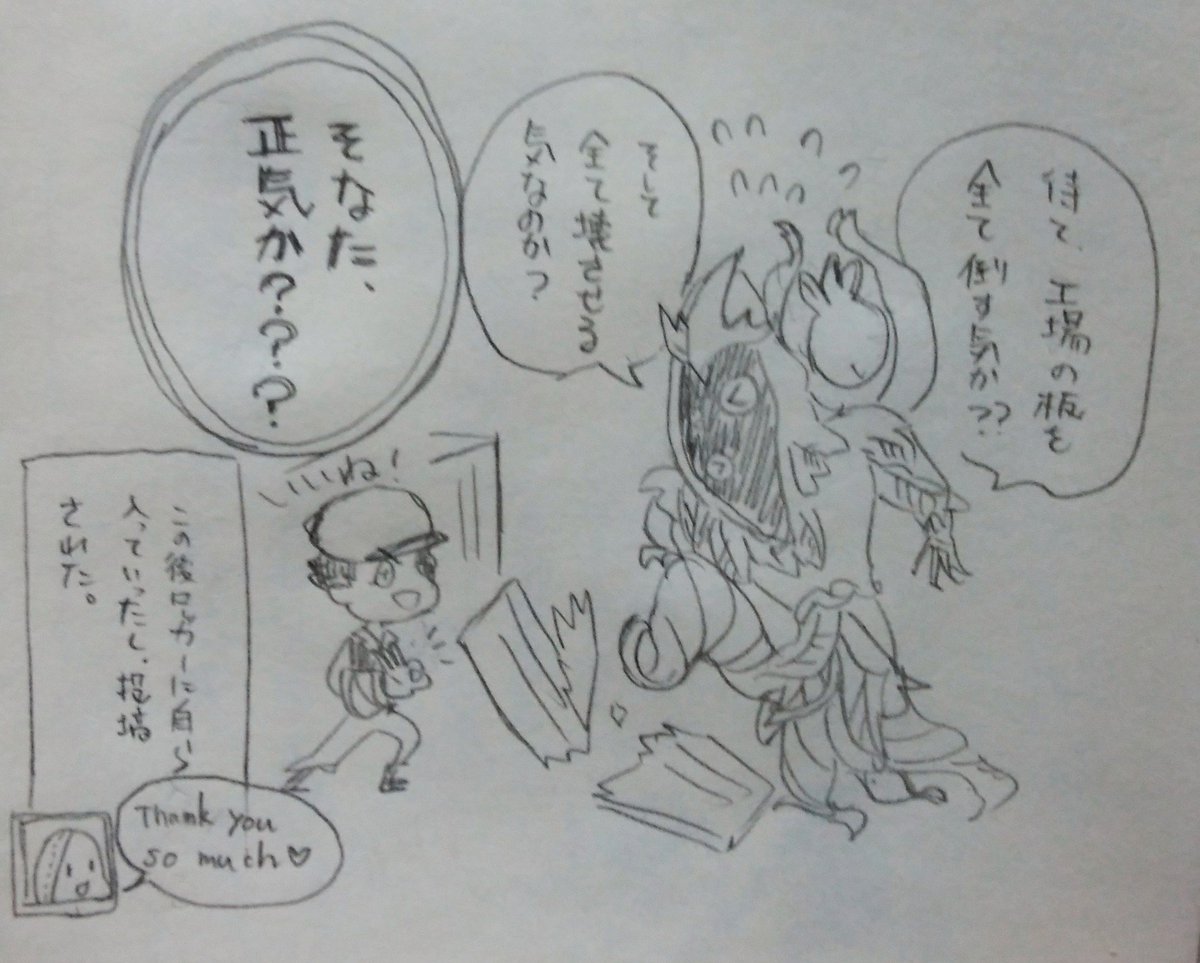 待て、工場の板を
全て倒す気か??
そして
全て壊させる
気なのか?
そなた、
正気か???
いいね!
この後ロッカーに自ら
入っていったし、投墳
された。
Thank you
so much♡